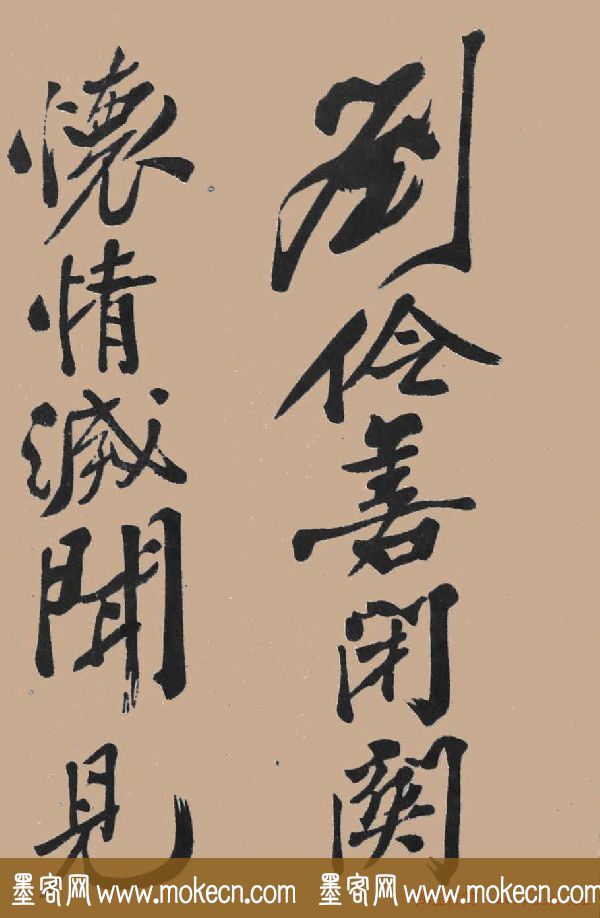 劉伶善閉關
懷情滅聞見
墨客网 www.mokecn.com 墨客网 www.mokecn.com